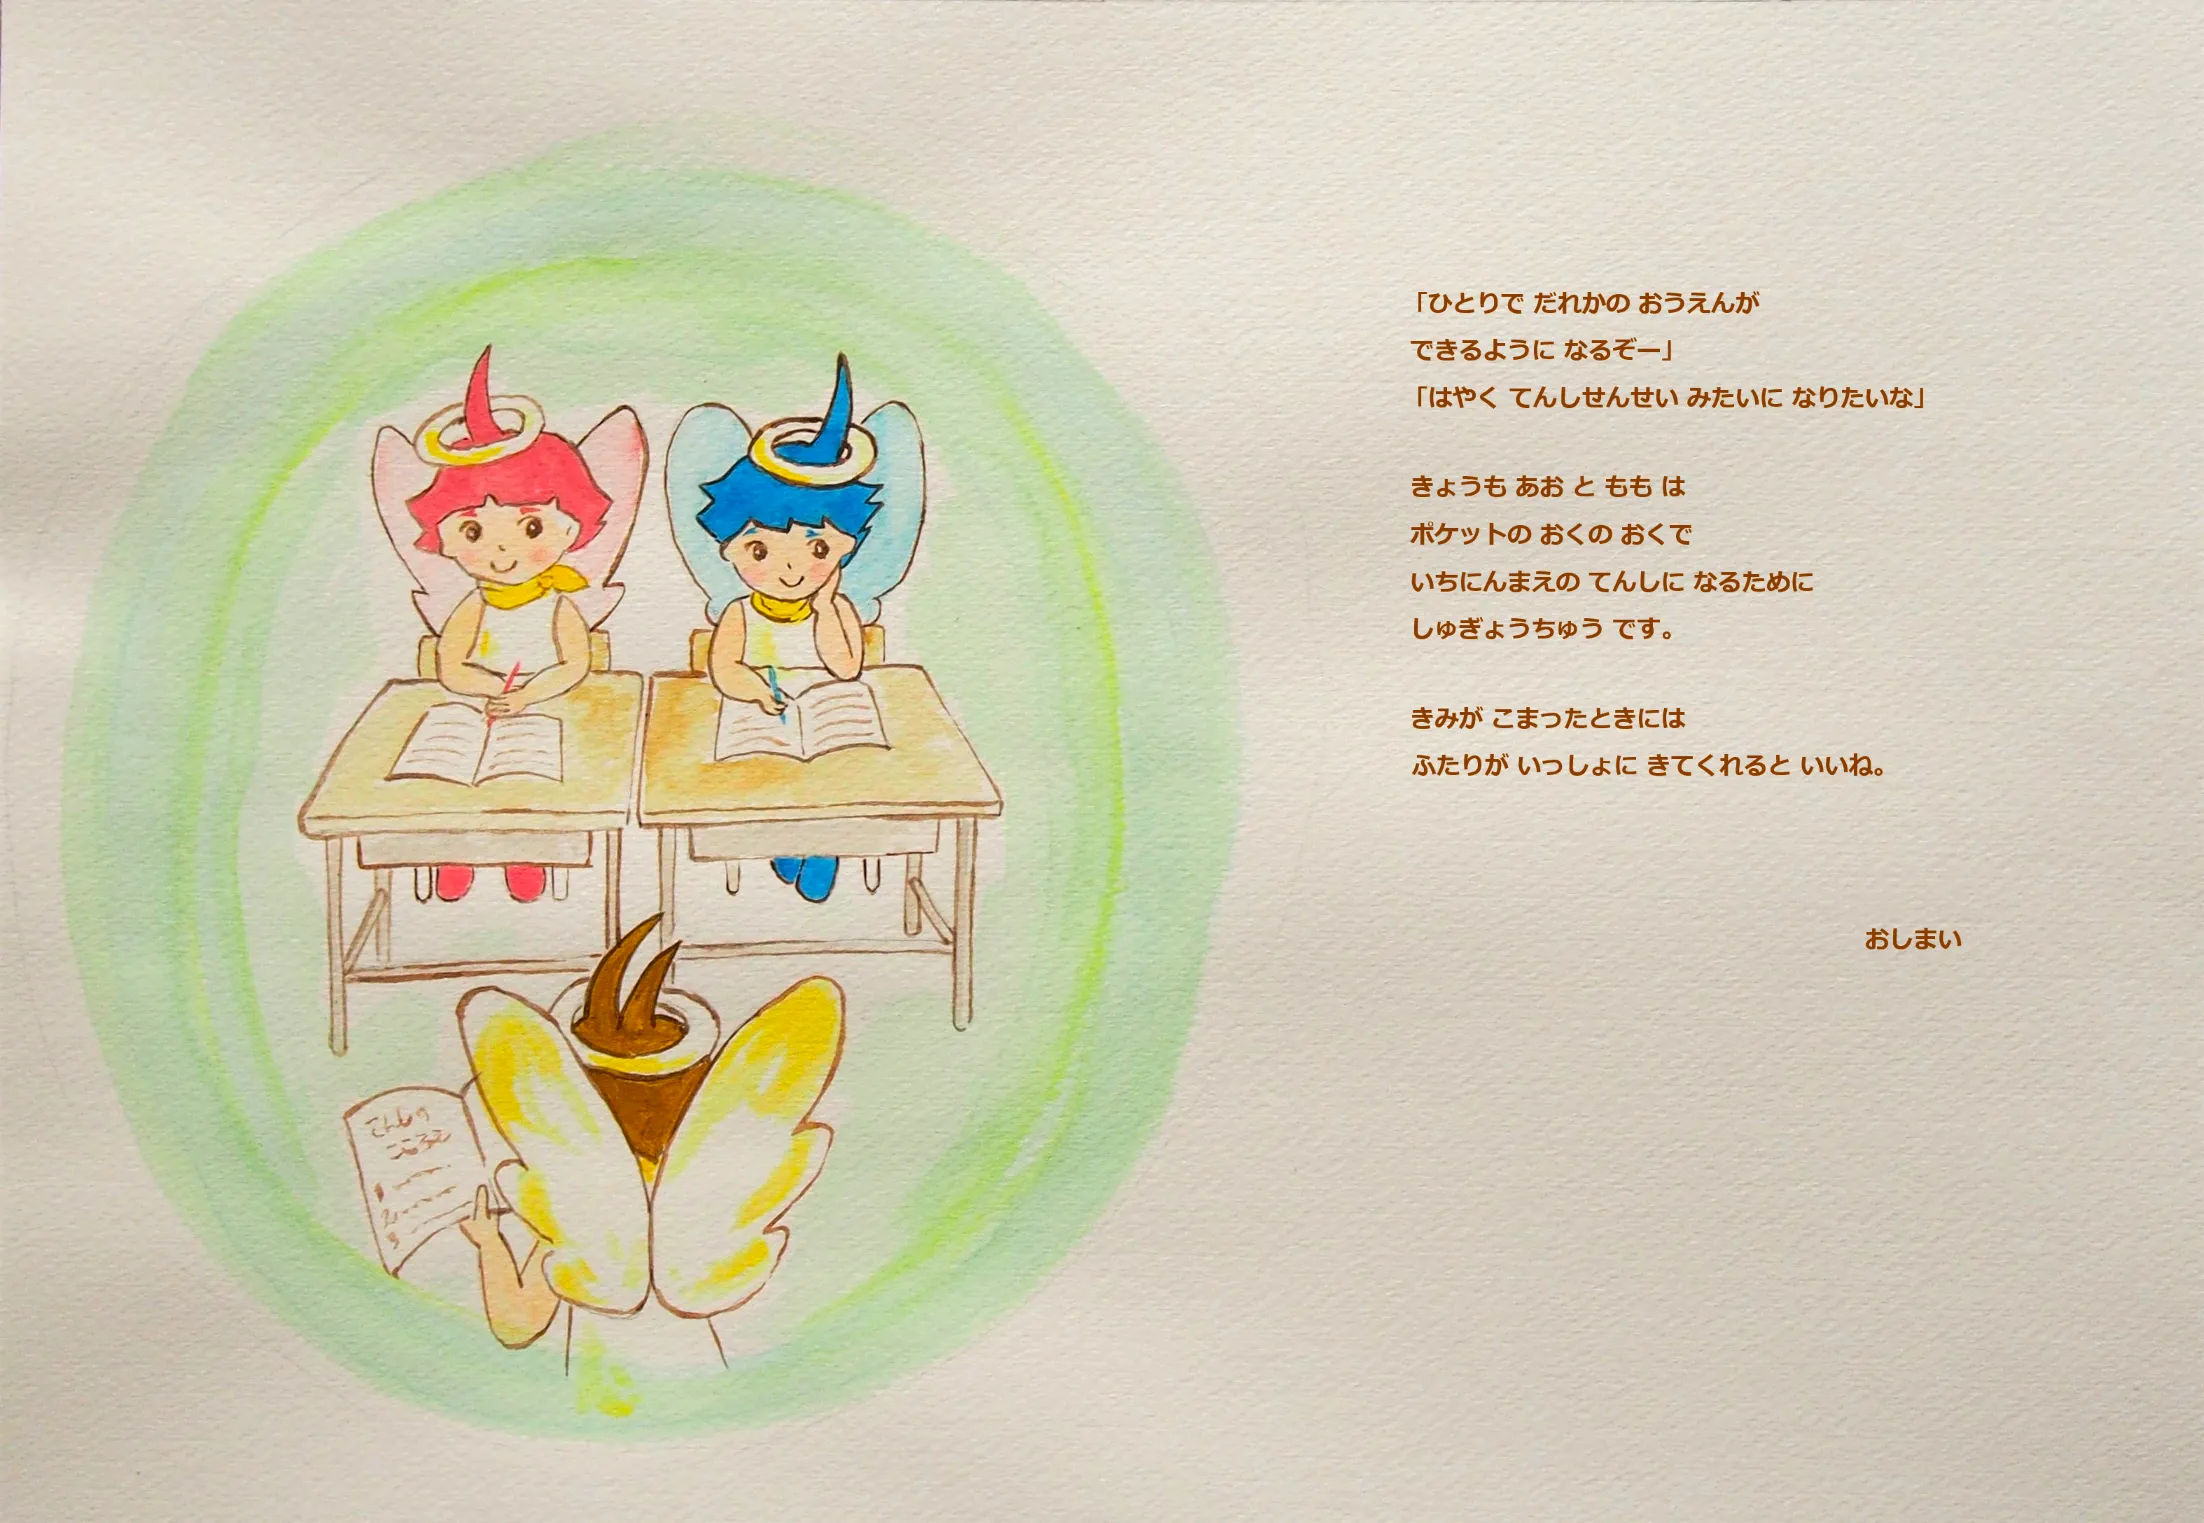 「ひとりで だれかの おうえんが
できるように なるぞー」
「はやく てんしせんせい みたいに なりたいな」
きょうも あお と もも は
ポケットの おくの おくで
いちにんまえの てんしに なるために
しゅぎょうちゅう です。
きみが こまったときには
ふたりが いっしょに きてくれると いいね。
おしまい
てんしの
こころえ
1
2
3